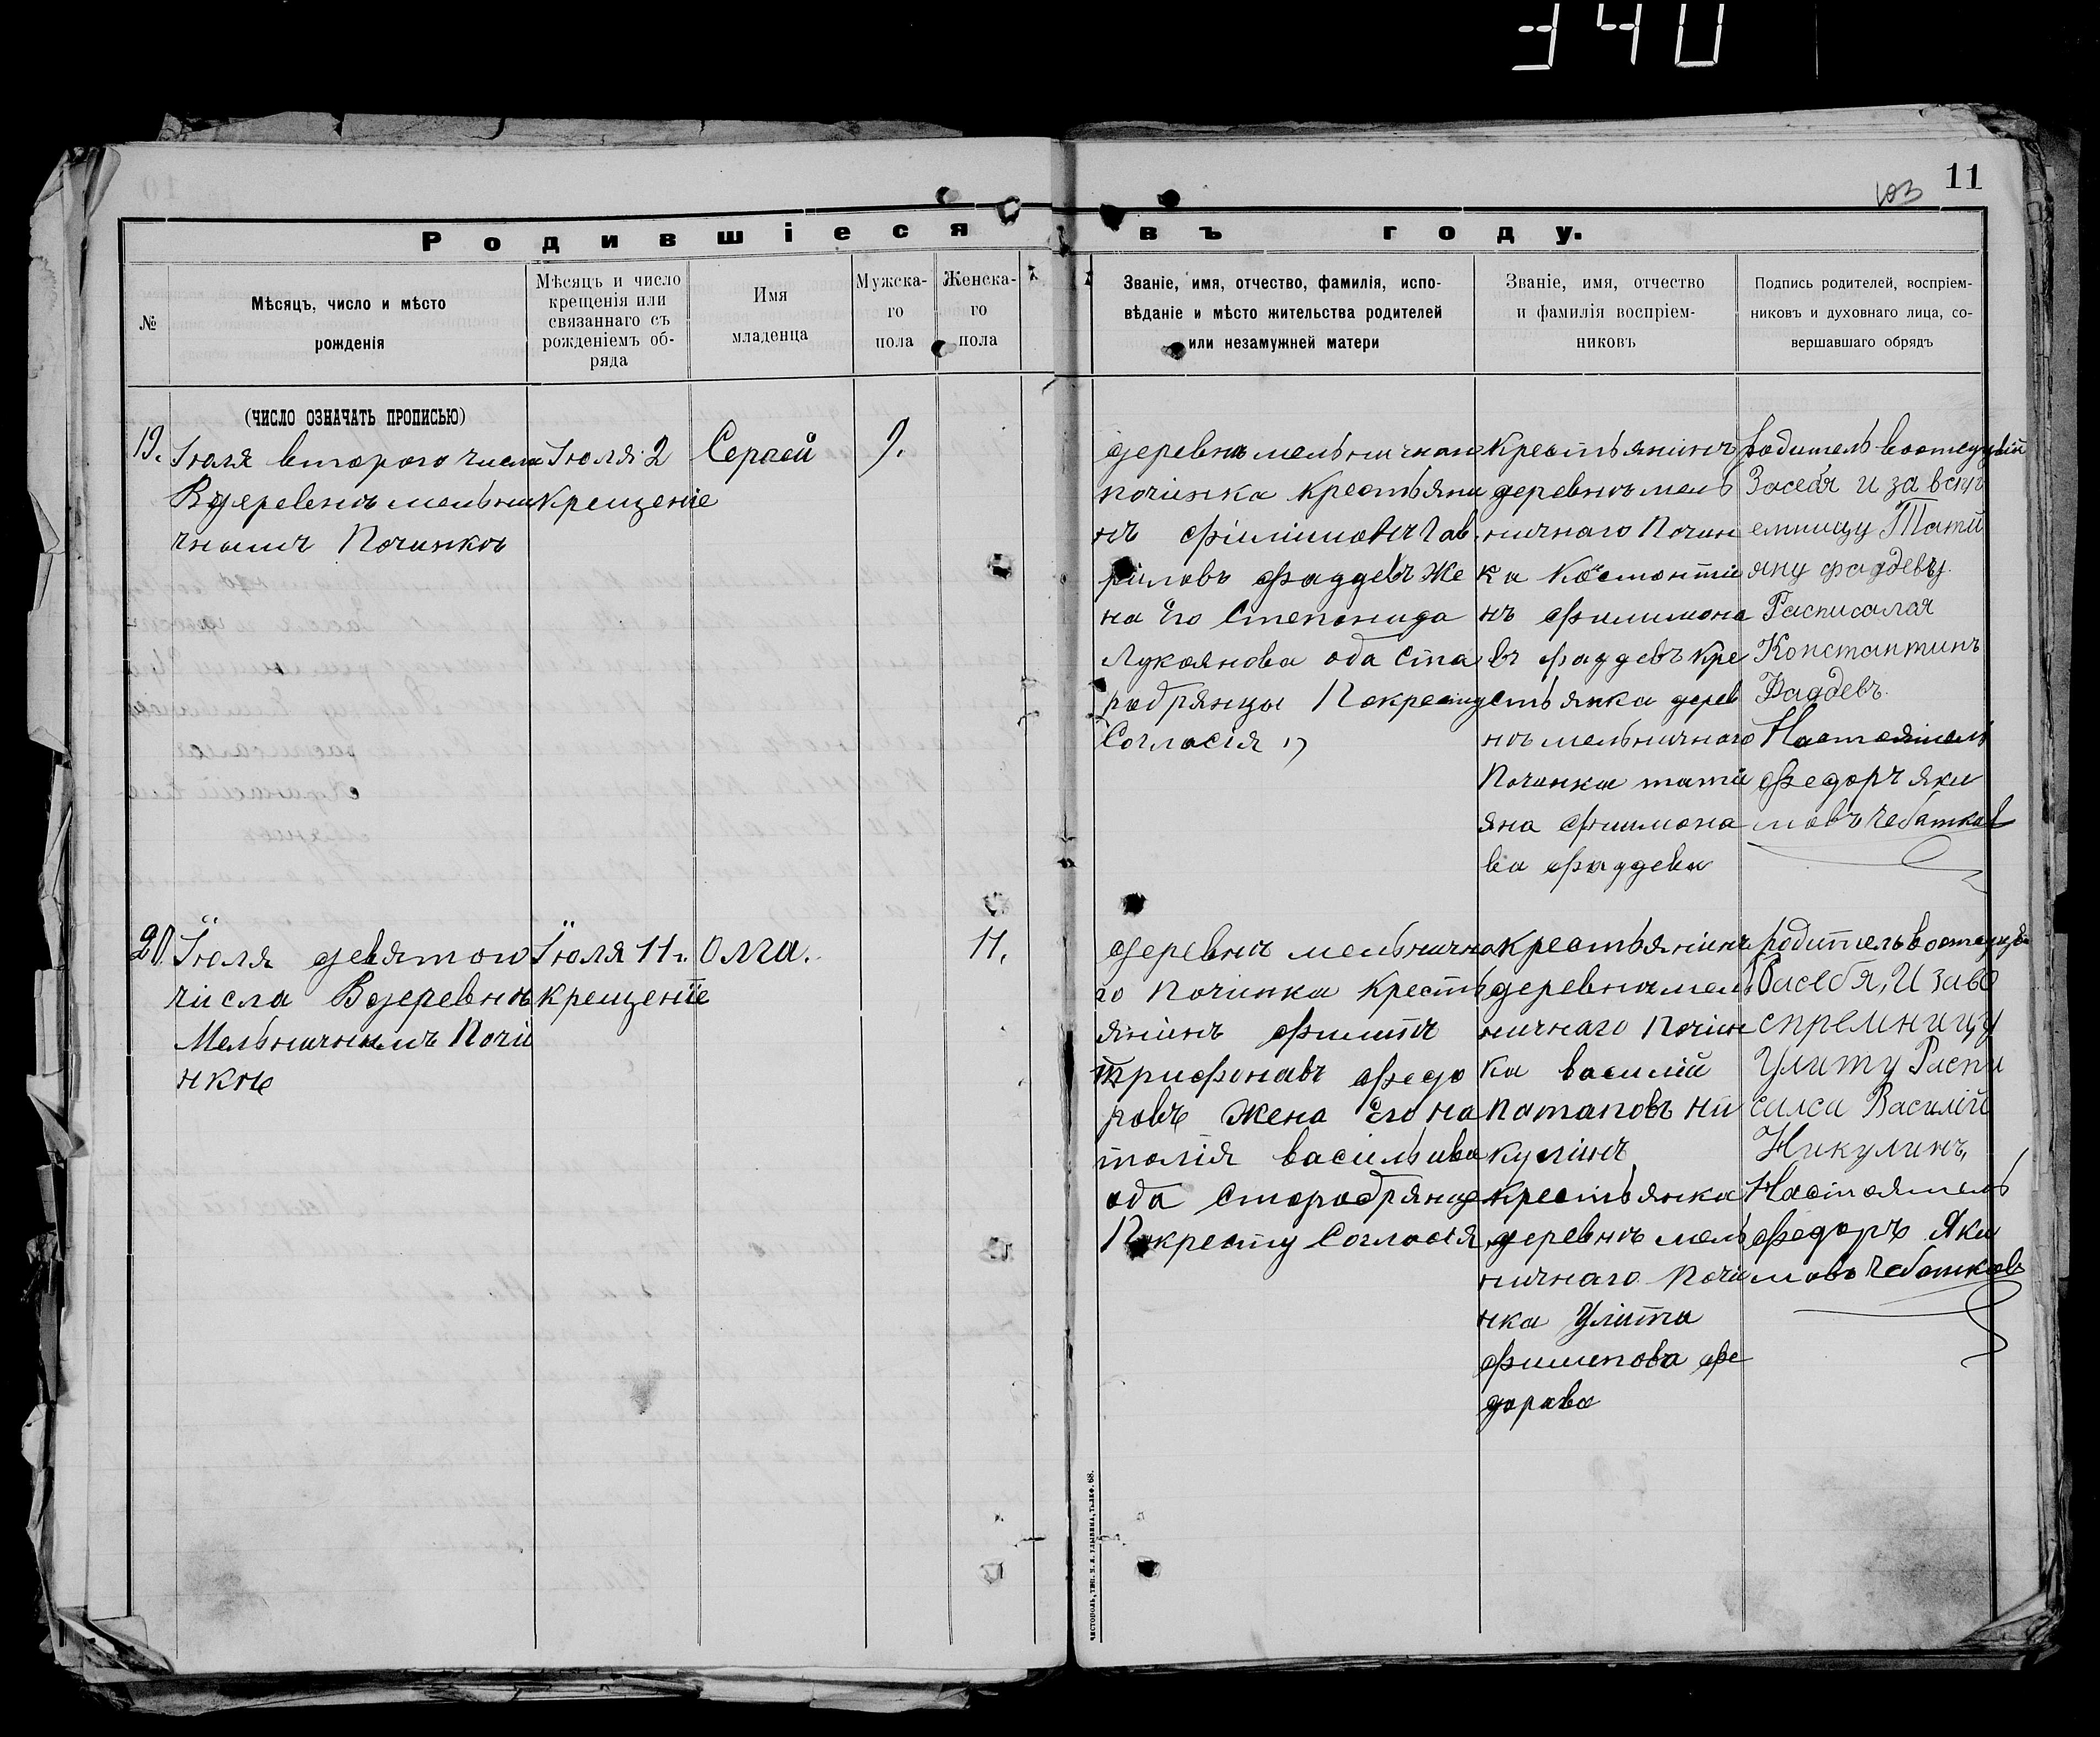 340
103
11
Родившіеся въ году.
№
Мѣсяцъ, число и мѣсто
рожденія
Мѣсяцъ и число
крещенія или
связаннаго съ
рожденіемъ об-
ряда
Имя
младенца
Мужска-
го
пола
Женска-
го
пола
Званіе, имя, отчество, фамилія, испо-
вѣданіе и мѣсто жительства родителей
или незамужней матери
Званіе, имя, отчество
и фамилія воспріем-
никовъ
Подпись родителей, воспріем-
никовъ и духовнаго лица, со-
вершавшаго обрядъ
(число означать прописью)
19.
Іюля второго числа
Вдеревенѣ мельни
чнымъ Починкѣ
Іюля 2
крещеніе
Сергей
9.
деревни мельничнаго
починка крестьяни
нъ филимонъ Гав
риловъ фаддевъ Же
на Его Степонида
Лукоянова оба Ста
робрянцы Покресту
Согласія
крестьянинъ
деревнѣ мель
ничнаго Почин
ка Костонтіи
нъ филимона
въ фаддевъ кре
стьянка дерев
нѣ мельничнаго
Починка тати
яна филимона
ва фаддева
родитель
Засебя и за
емницу Тати
яну фаддеву.
Расписалая
Константинъ
Фаддевъ.
Настоятель
Федоръ Яки
мовъ Чебатков
20.
Іюля девятого
числа Вдеревнѣ
Мельничнымъ Почи
нкѣ
Іюля 11.
крещеніе
Олга.
11.
деревни мельнично
го Починка Кресть
янинъ филипъ
трифонавъ федо
ровъ Жена Его на
талія васильива
оба Старобрянце
Покресту Согласія
крестьянинъ
деревни мель
ничнаго Почин
ка василій
патаповъ ни
кулинъ
крестьянка
деревнѣ мель
ничнаго Почи
нка Улита
филипова фе
дорава
родитель
Засебя, И заво
спремницу
Улиту Распи
салса Василій
Никулинъ,
Настоятель
федоръ Яки
мовъ Чебатковъ